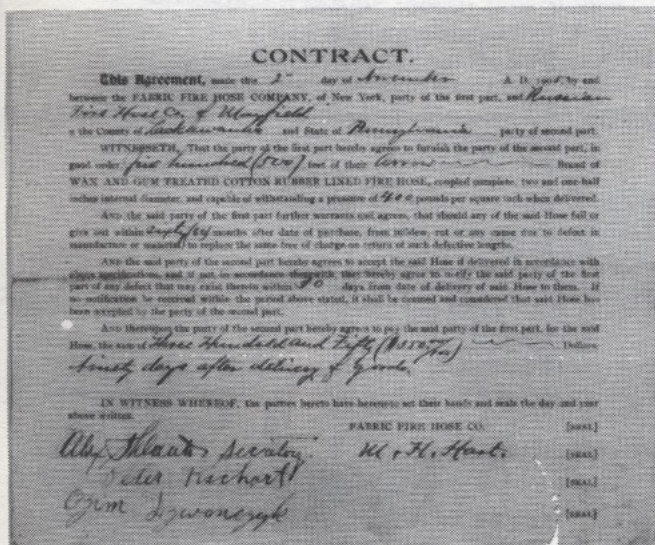 CONTRACT.
This Agreement, made this 2" day of November A. D. 190 , by and
between the FABRIC FIRE HOSE COMPANY, of New York, party of the first part, and Russian
Fire Hose Co of Mayfield
n the County of Lackawanna and State of Pennsylvania party of second part.
WITNESSETH, That the party of the first part hereby agrees to furnish the party of the second part, in
good order five hundred (500) feet of their Arrow Brand of
WAX AND GUM TREATED COTTON RUBBER LINED FIRE HOSE, coupled complete, two and one-half
inches internal diameter, and capable of withstanding a pressure of 400 pounds per square inch when delivered.
AND the said party of the first part further warrants and agrees, that should any of the said Hose fail or
give out within months after date of purchase, from mildew, rot or any cause due to defect in
manufacture or material, to replace the same free of charge on return of such defective lengths.
AND the said party of the second part hereby agrees to accept the said Hose if delivered in accordance with
specifications, and if not in accordance therewith, they hereby agree to notify the said party of the first
part of any defect that may exist therein within 90 days from date of delivery of said Hose to them. If
no notification be received within the period above stated, it shall be deemed and considered that said Hose has
been accepted by the party of the second part.
AND thereupon the party of the second part hereby agrees to pay the said party of the first part, for the said
Hose, the sum of Three Hundred and Fifty ($350 /100) Dollars
ninety days after delivery of goods.
IN WITNESS WHEREOF, the parties hereto have hereunto set their hands and seals the day and year
above written.
FABRIC FIRE HOSE CO. [SEAL]
Alex Secretary W. H. Hart. [SEAL]
Peter [SEAL]
[SEAL]